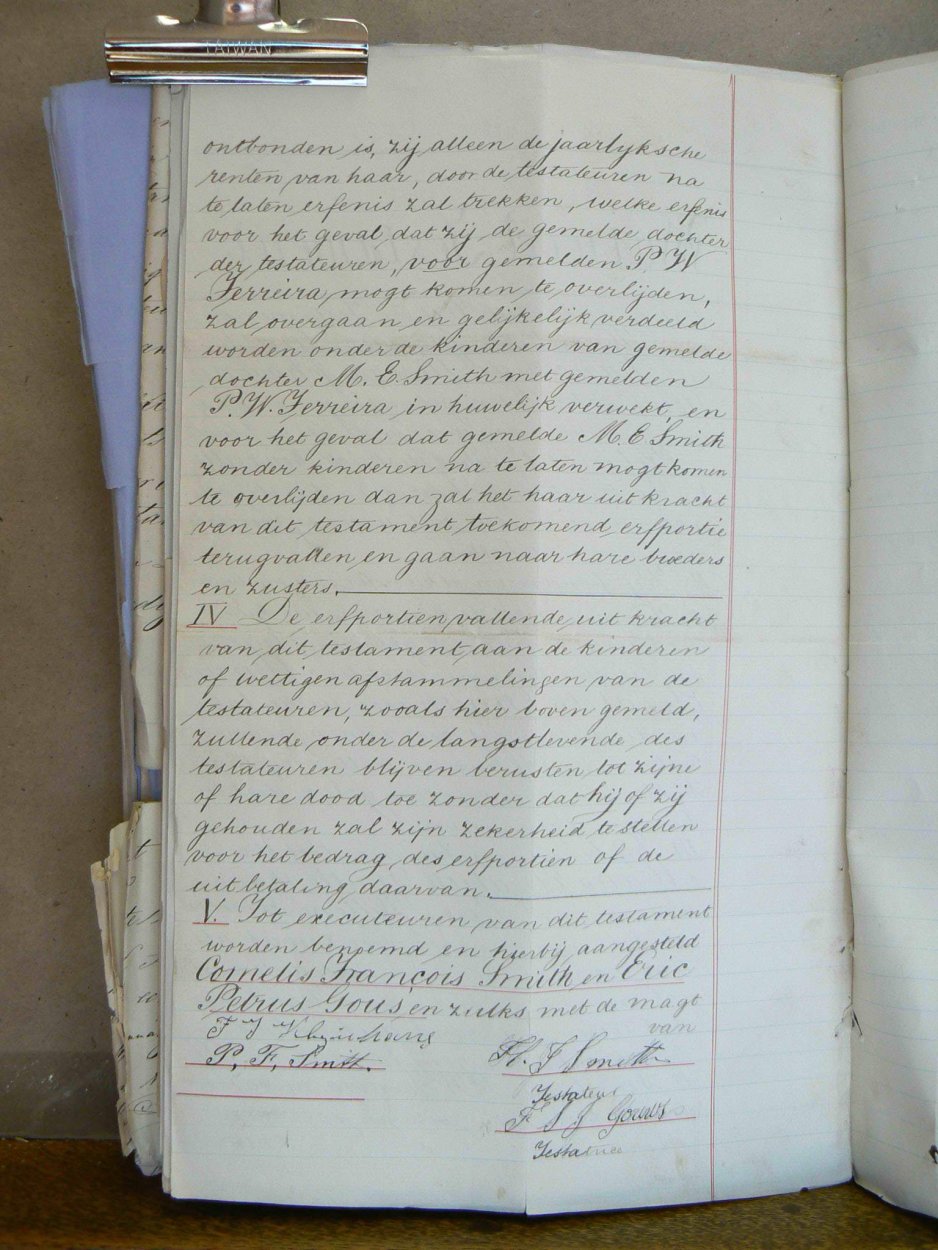 TAIWAN
ontbonden is, zij alleen de jaarlyksche
renten van haar, door de testateuren na
te laten erfenis zal trekken, welke erfenis
voor het geval dat zij de gemelde dochter
der testateuren, voor gemelden P. W
Ferreira mogt komen te overlijden,
zal overgaan en gelijkelijk verdeeld
worden onder de kinderen van gemelde
dochter M. E. Smith met gemelden
P. W. Ferreira in huwelijk verwekt, en
voor het geval dat gemelde M. E. Smith
zonder kinderen na te laten mogt komen
te overlijden dan zal het haar uit kracht
van dit testament toekomend erfportie
terugvallen en gaan naar hare broeders
en zusters.
IV De erfportien vallende uit kracht
van dit testament aan de kinderen
of wettigen afstammelingen van de
testateuren, zooals hier boven gemeld,
zullende onder de langstlevende des
testateuren blijven berusten tot zijne
of hare dood toe zonder dat hij of zij
gehouden zal zijn zekerheid te stellen
voor het bedrag des erfportien of de
uitbetaling daarvan.
V. Tot executeuren van dit testament
worden benoemd en hierbij aangesteld
Cornelis François Smith en Eric
Petrus Gous en zulks met de magt
van
F J J
P. F. Smit.
H. J Smith
Testateur
F S J Gouws
Testatrice